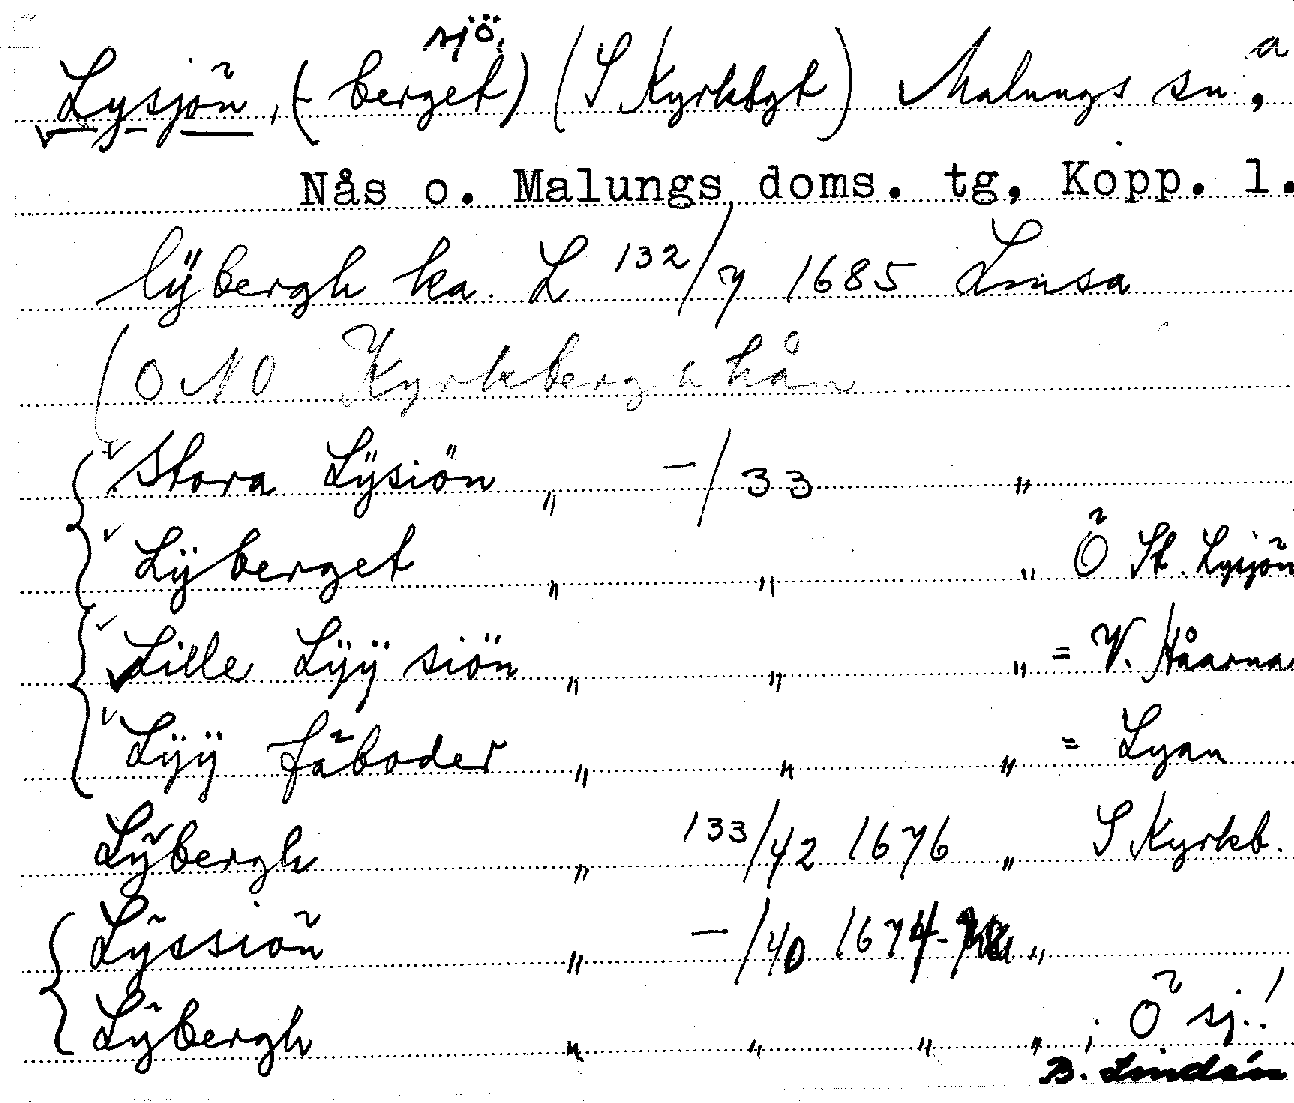 sjö
Lysjön, (-berget) (S Kyrkbgt) Malungs sn, a
Nås o. Malungs doms. tg, Kopp. l.
lÿbergh ka. L 132/7 1685 Limsa
(O NO Kyrkberg h hån
Stora Lÿsiön " -/33 "
Lÿberget " " " Ö St. Lysjön
Lille Lÿÿ siön " " " = V. Håarna
Lÿÿ fäboder " " " = Lyan
Lÿbergh " 133/42 1676 " S Kyrkb.
Lÿssiön " -/40 1674- "
Lÿbergh " " " " ; Ö sj.!
B. Lindén